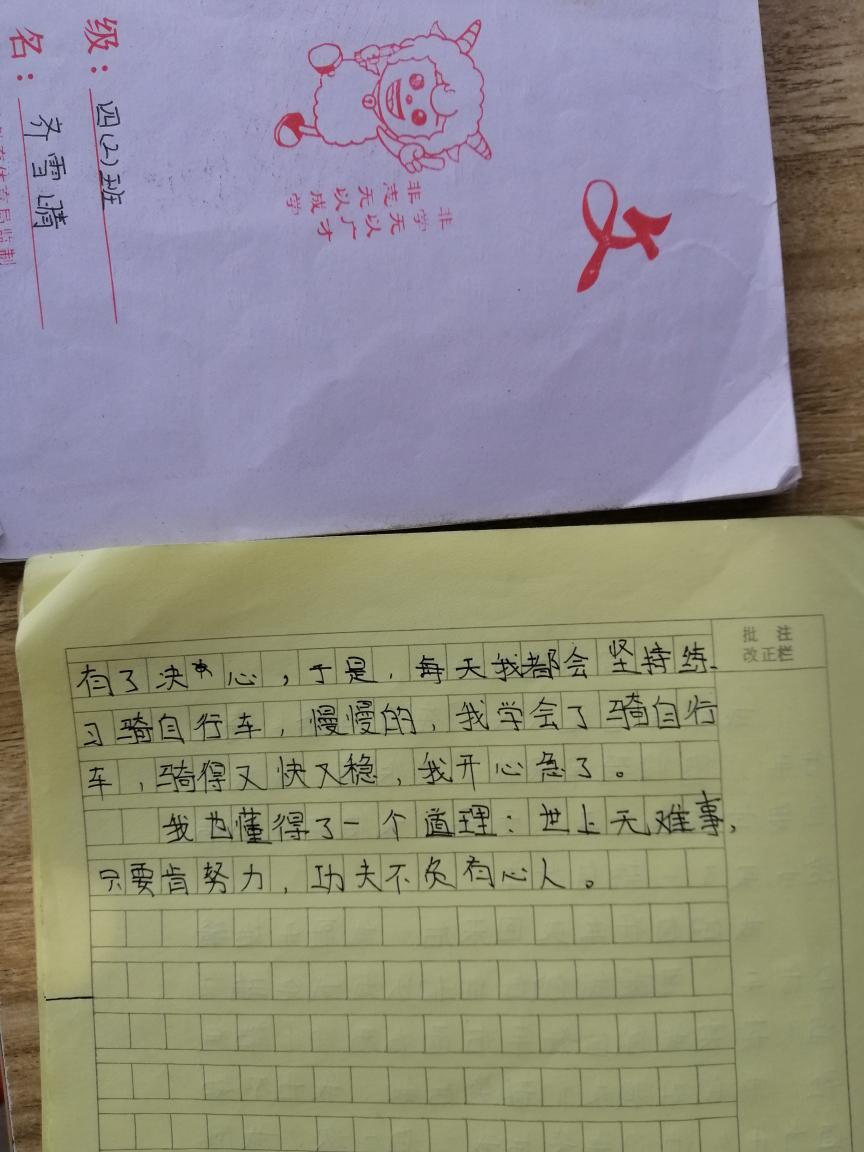 级：四(2)班
名：齐雪晴
非学无以广才
非志无以成学
批 注
改正栏
有了决心，于是，每天我都会坚持练
习骑自行车，慢慢的，我学会了骑自行
车，骑得又快又稳，我开心急了。
我也懂得了一个道理：世上无难事，
只要肯努力，功夫不负有心人。